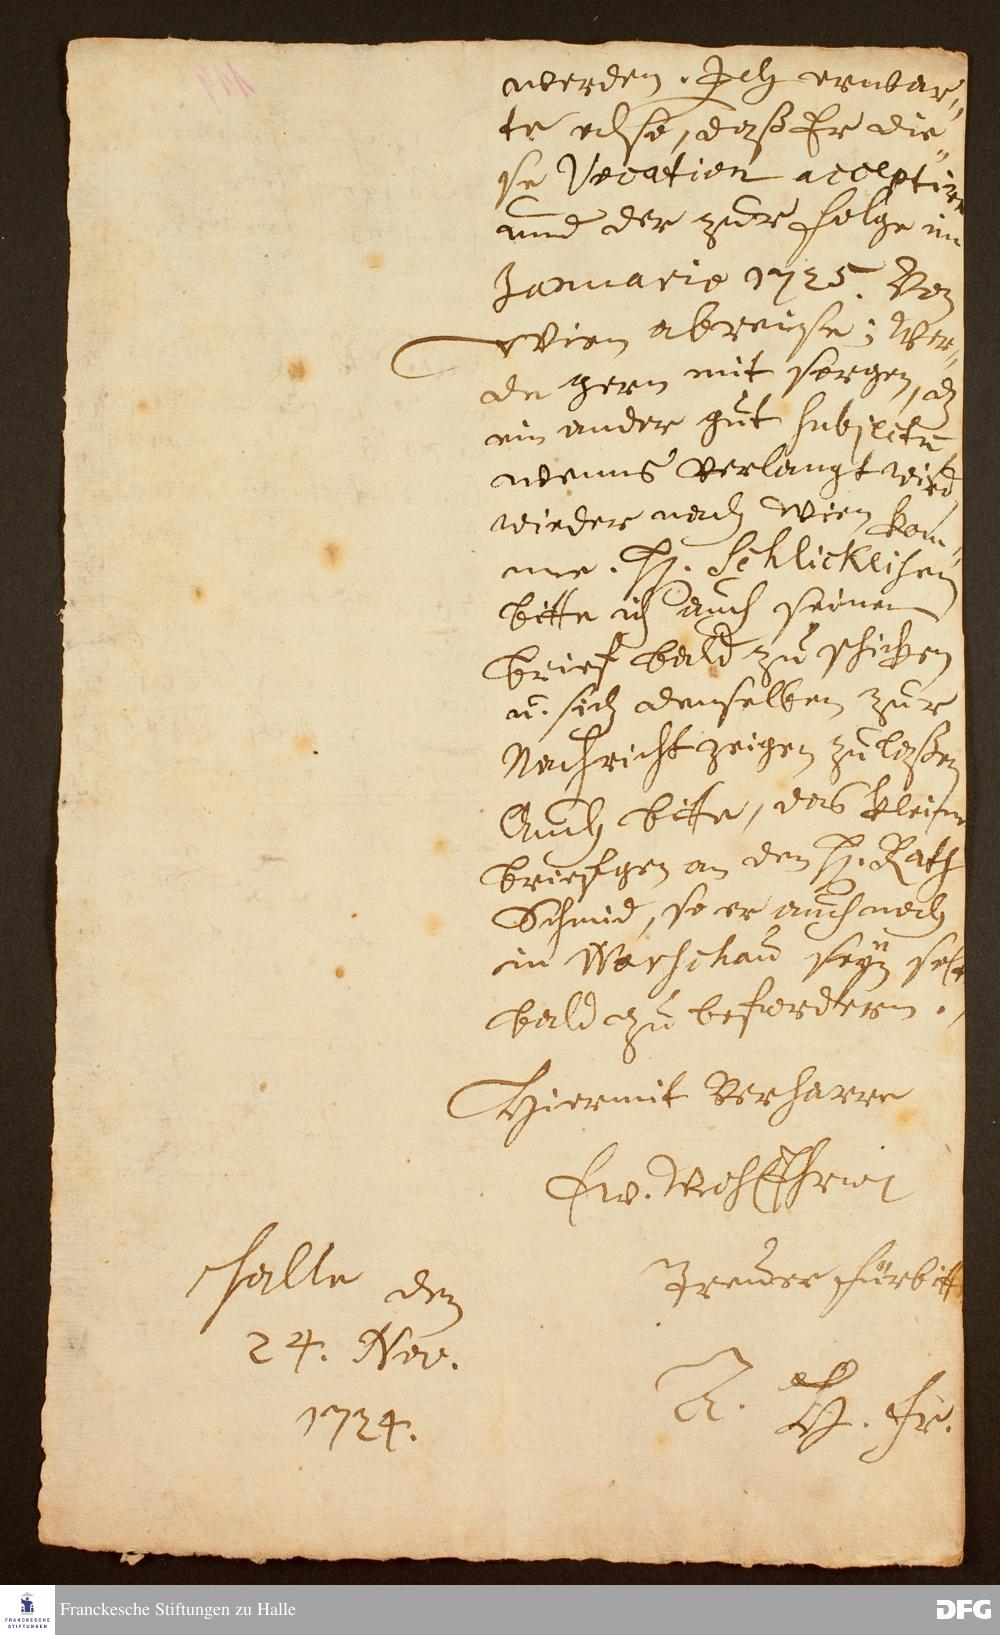 werden. Ich erwar„
te also, daß Er die„
se Vocation acceptire
und der zur folge im
Januario 1725. Von
Wien abreise; Wer„
de gern mit sorgen, dz
ein ander gut subjectū
wenns verlangt wird,
wieder nach Wien kom„
me. H. Schlicklisen
bitte ich auch seinen
brief bald zu schicken
u. sich denselben zur
Nachricht zeigen zu laßen
Auch bitte, das kleine
briefgen an den H. Rath
Schmid, so er auch noch
in Warschau seyn solte
bald zu befordern.
Hiermit Verharre
Ew.
Halle den
24. Nov.
1724.
Treuer fürbitt
A. H. Fr.
Franckesche Stiftungen zu Halle
FRANCKESCHE
STIFTUNGEN
DFG